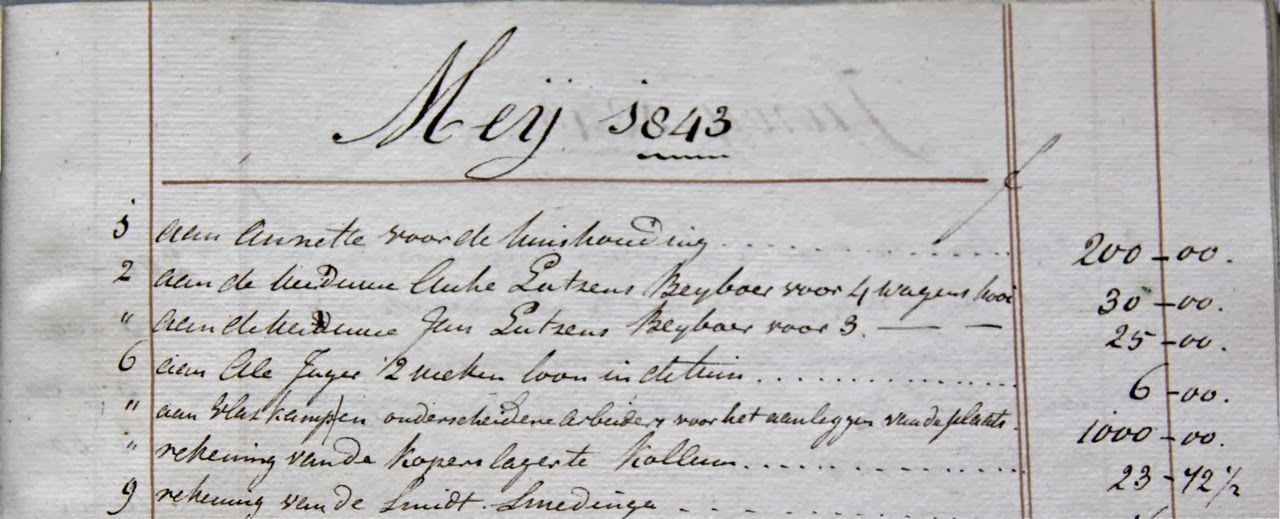 Meij 1843
f
1 aan Annette voor de huishouding . . . . . . . . . . . . 200 - 00.
2 aan de weduwe Auke Lutzens Beyboer voor 4 wagens hooi 30 - 00.
" aan de weduwe Jan Lutzens Beyboer voor 3. — — 25 - 00.
6 aan Ale Jager 2 weken loon in de tuin . . . . . . . . . . 6 - 00.
" aan Vlaskamp en onderscheidene arbeiders voor het aanleggen van de plaats. 1000 - 00.
" rekening van de koperslager te Kollum. . . . . . . . . . . 23 - 72 ½
9 rekening van de Smidt Smedinga . . . . . . . .